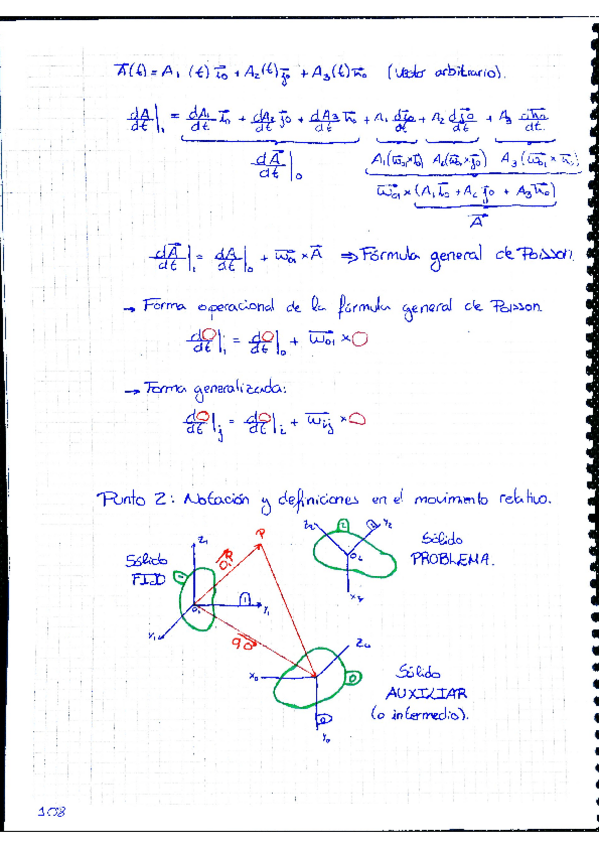 A⃗(t) = A₁(t) i⃗₀ + A₂(t) j⃗₀ + A₃(t) k⃗₀ (vector arbitrario).
dA⃗/dt|₁ = dA₁/dt i⃗₀ + dA₂/dt j⃗₀ + dA₃/dt k⃗₀ + A₁ di⃗₀/dt + A₂ dj⃗₀/dt + A₃ dk⃗₀/dt
dA⃗/dt|₀ A₁(ω⃗₀₁×i⃗₀) A₂(ω⃗₀₁×j⃗₀) A₃(ω⃗₀₁×k⃗₀)
ω⃗₀₁×(A₁i⃗₀ + A₂j⃗₀ + A₃k⃗₀)
A⃗
dA⃗/dt|₁ = dA⃗/dt|₀ + ω⃗₀₁×A⃗ ⇒ Fórmula general de Poisson.
→ Forma operacional de la fórmula general de Poisson
d○/dt|₁ = d○/dt|₀ + ω⃗₀₁×○
→ Forma generalizada:
d○/dt|ⱼ = d○/dt|ᵢ + ω⃗ᵢⱼ×○
Punto 2: Notación y definiciones en el movimiento relativo.
Z₁ P X₂ 2 2 Y₂
Sólido FIJO
O₁P O₂
Sólido PROBLEMA.
1 O₁ 1 Y₁
X₁ O₁O
Z₀
X₀ 0
Sólido AUXILIAR
(o intermedio).
0
Y₀
108